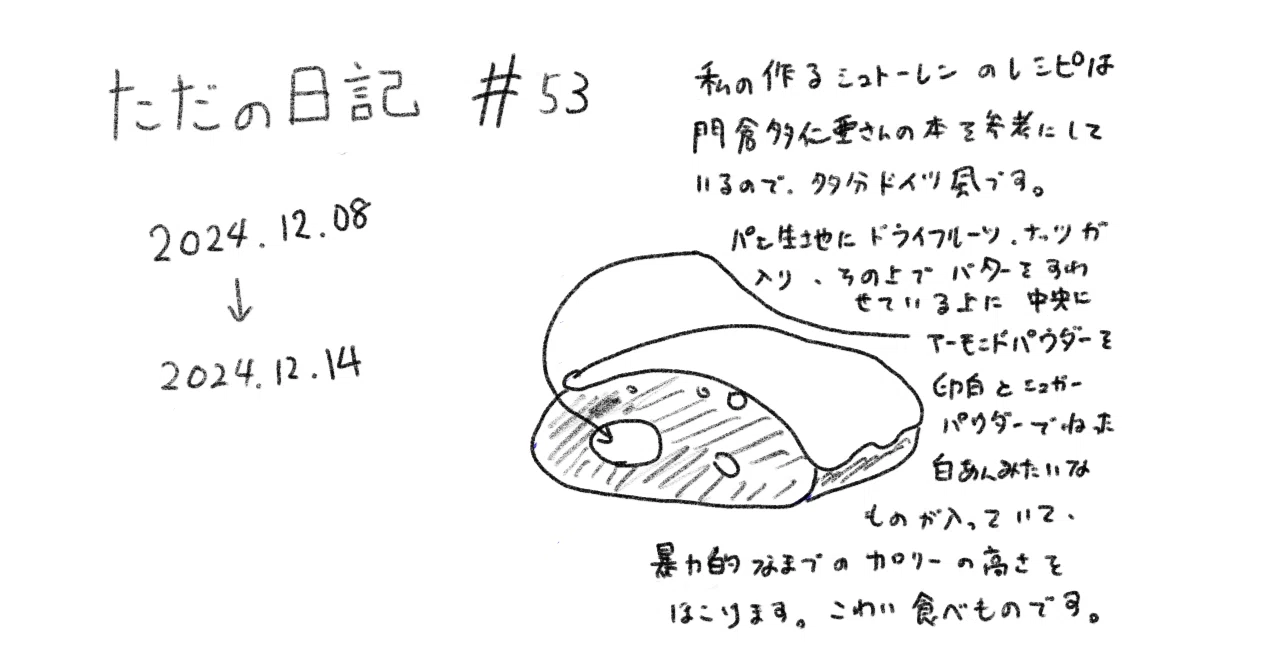 ただの日記 #53
2024.12.08
↓
2024.12.14
私の作るシュトーレンのレシピは
門倉多仁亜さんの本を参考にして
いるので、多分ドイツ風です。
パン生地にドライフルーツ、ナッツが
入り、その上でバターをすわ
せている上に中央に
アーモンドパウダーを
卵白とシュガー
パウダーでねった
白あんみたいな
ものが入っていて、
暴力的なまでのカロリーの高さを
ほこります。こわい食べものです。